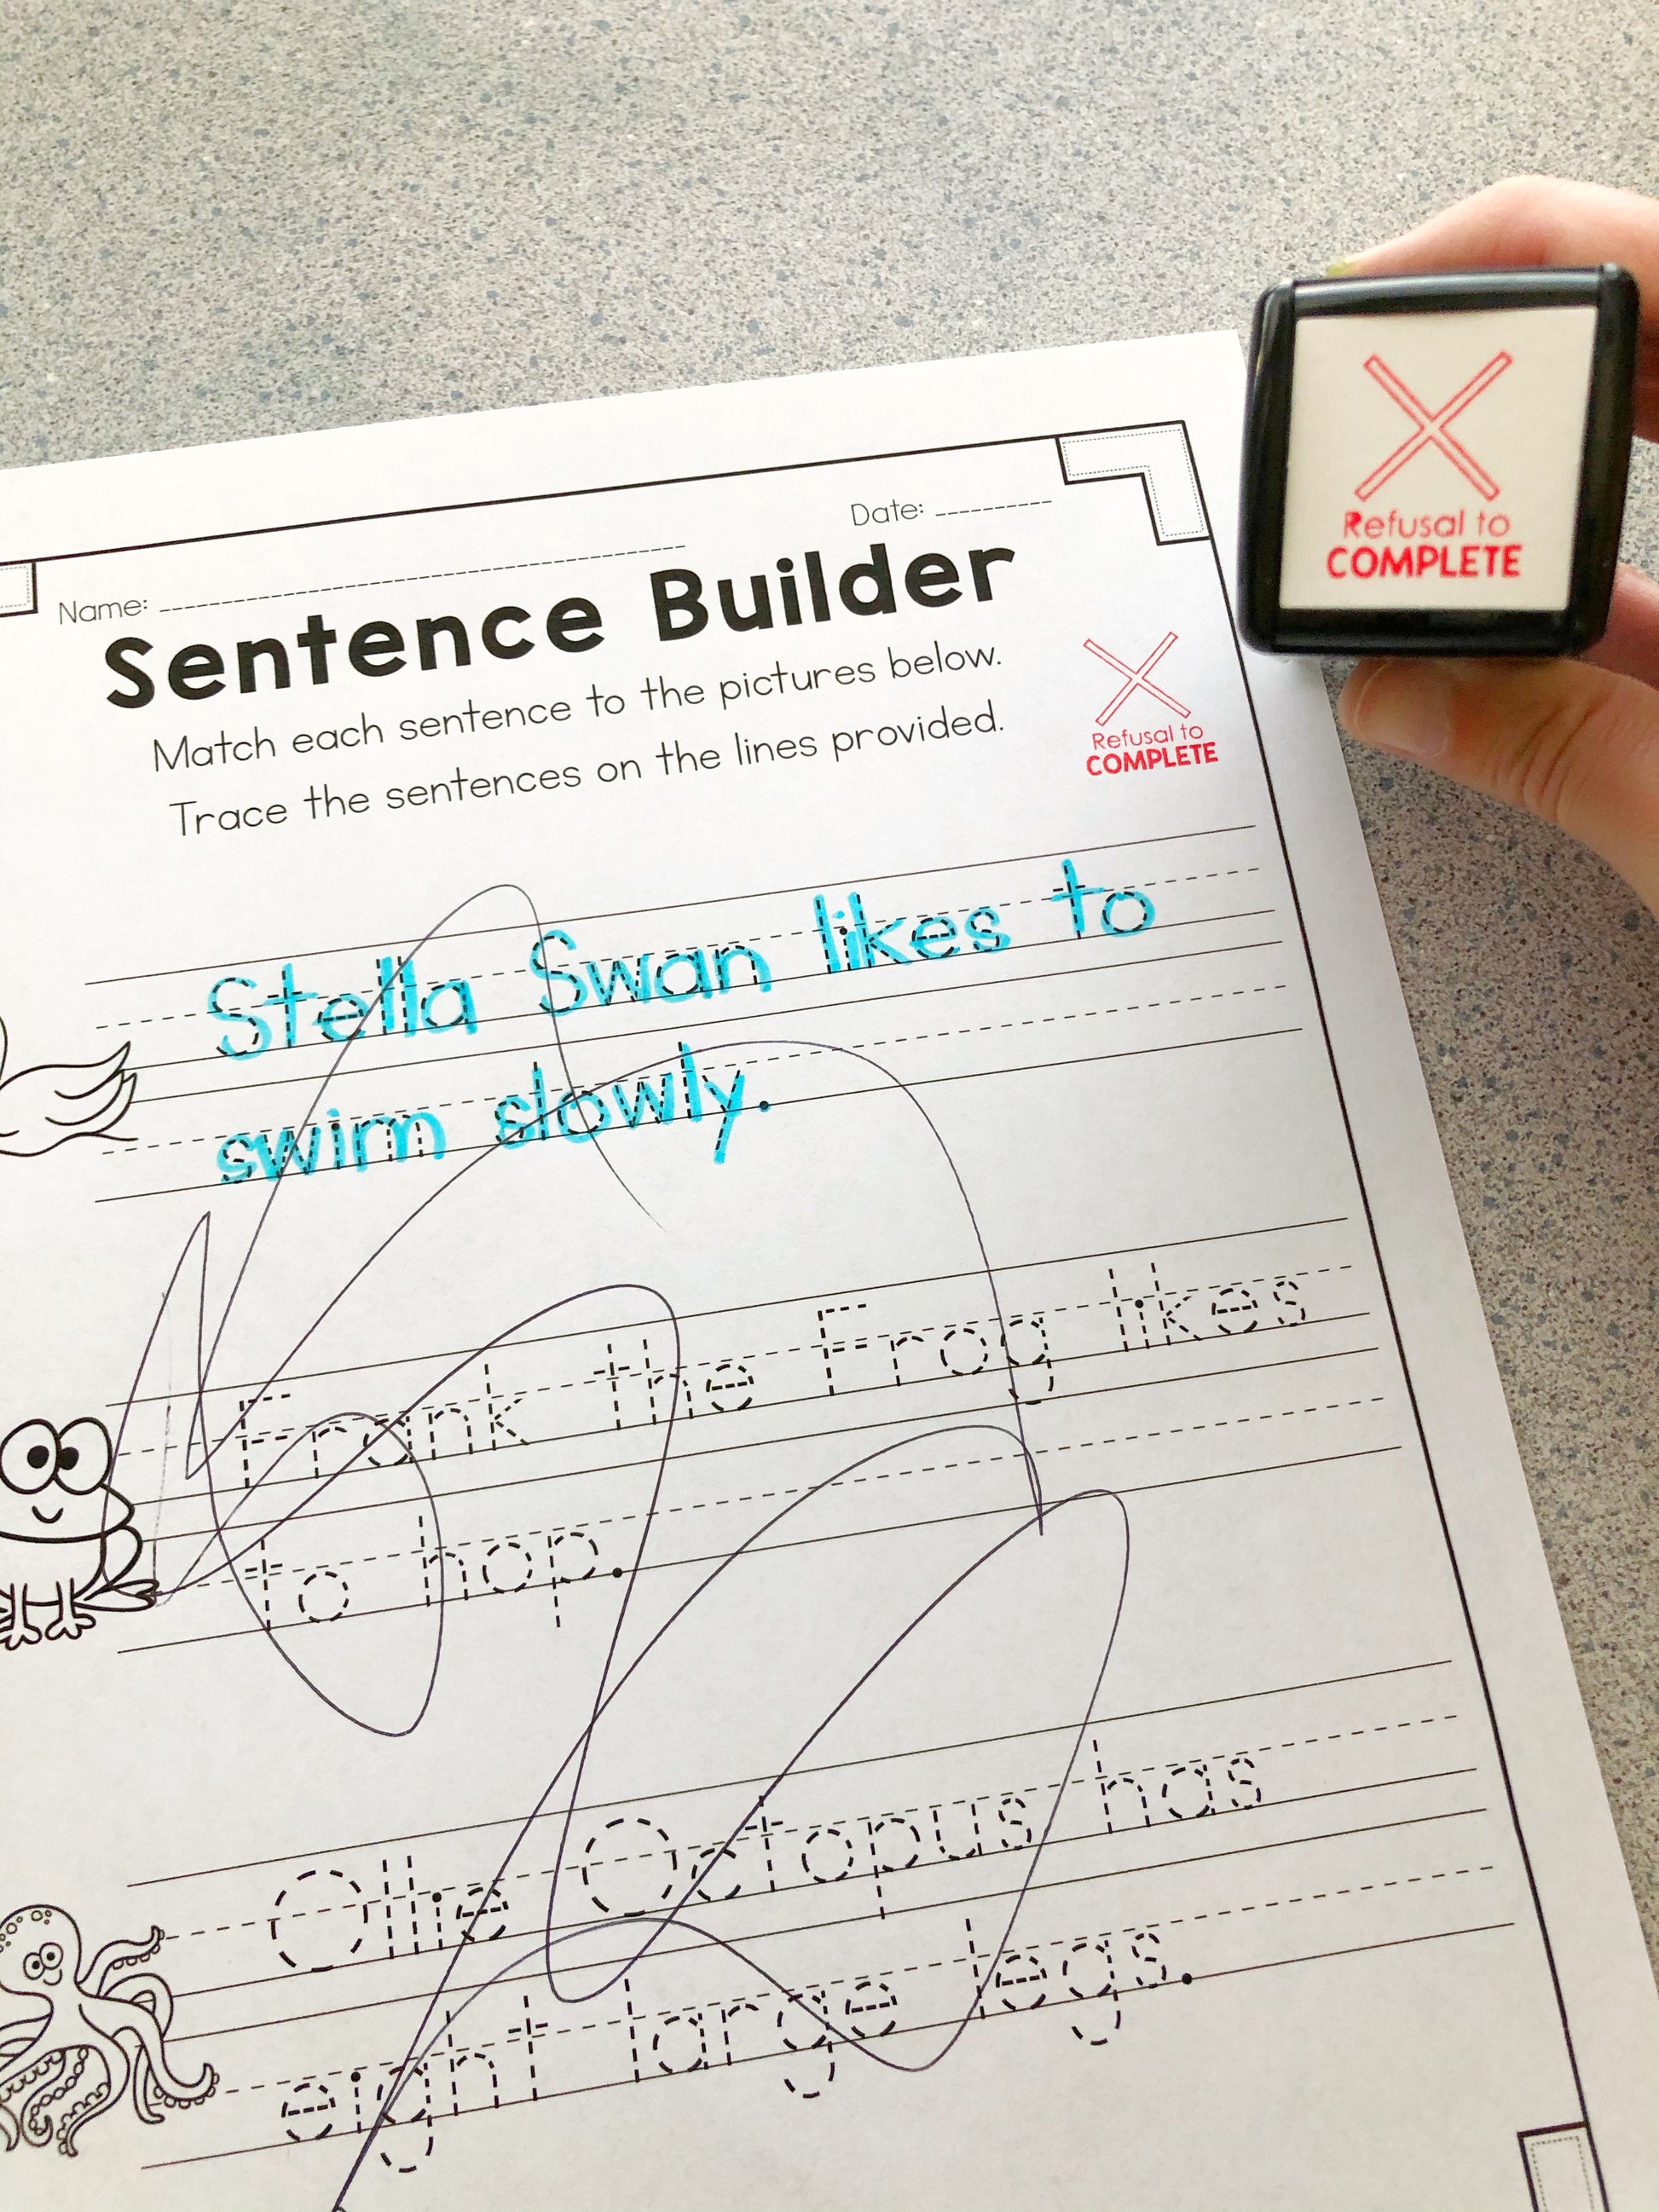 Date:
Name:
Sentence Builder
Match each sentence to the pictures below.
Trace the sentences on the lines provided.
Refusal to
COMPLETE
Refusal to
COMPLETE
Stella Swan likes to
swim slowly.
Frank the Frog likes
to hop.
Ollie Octopus has
eight large legs.